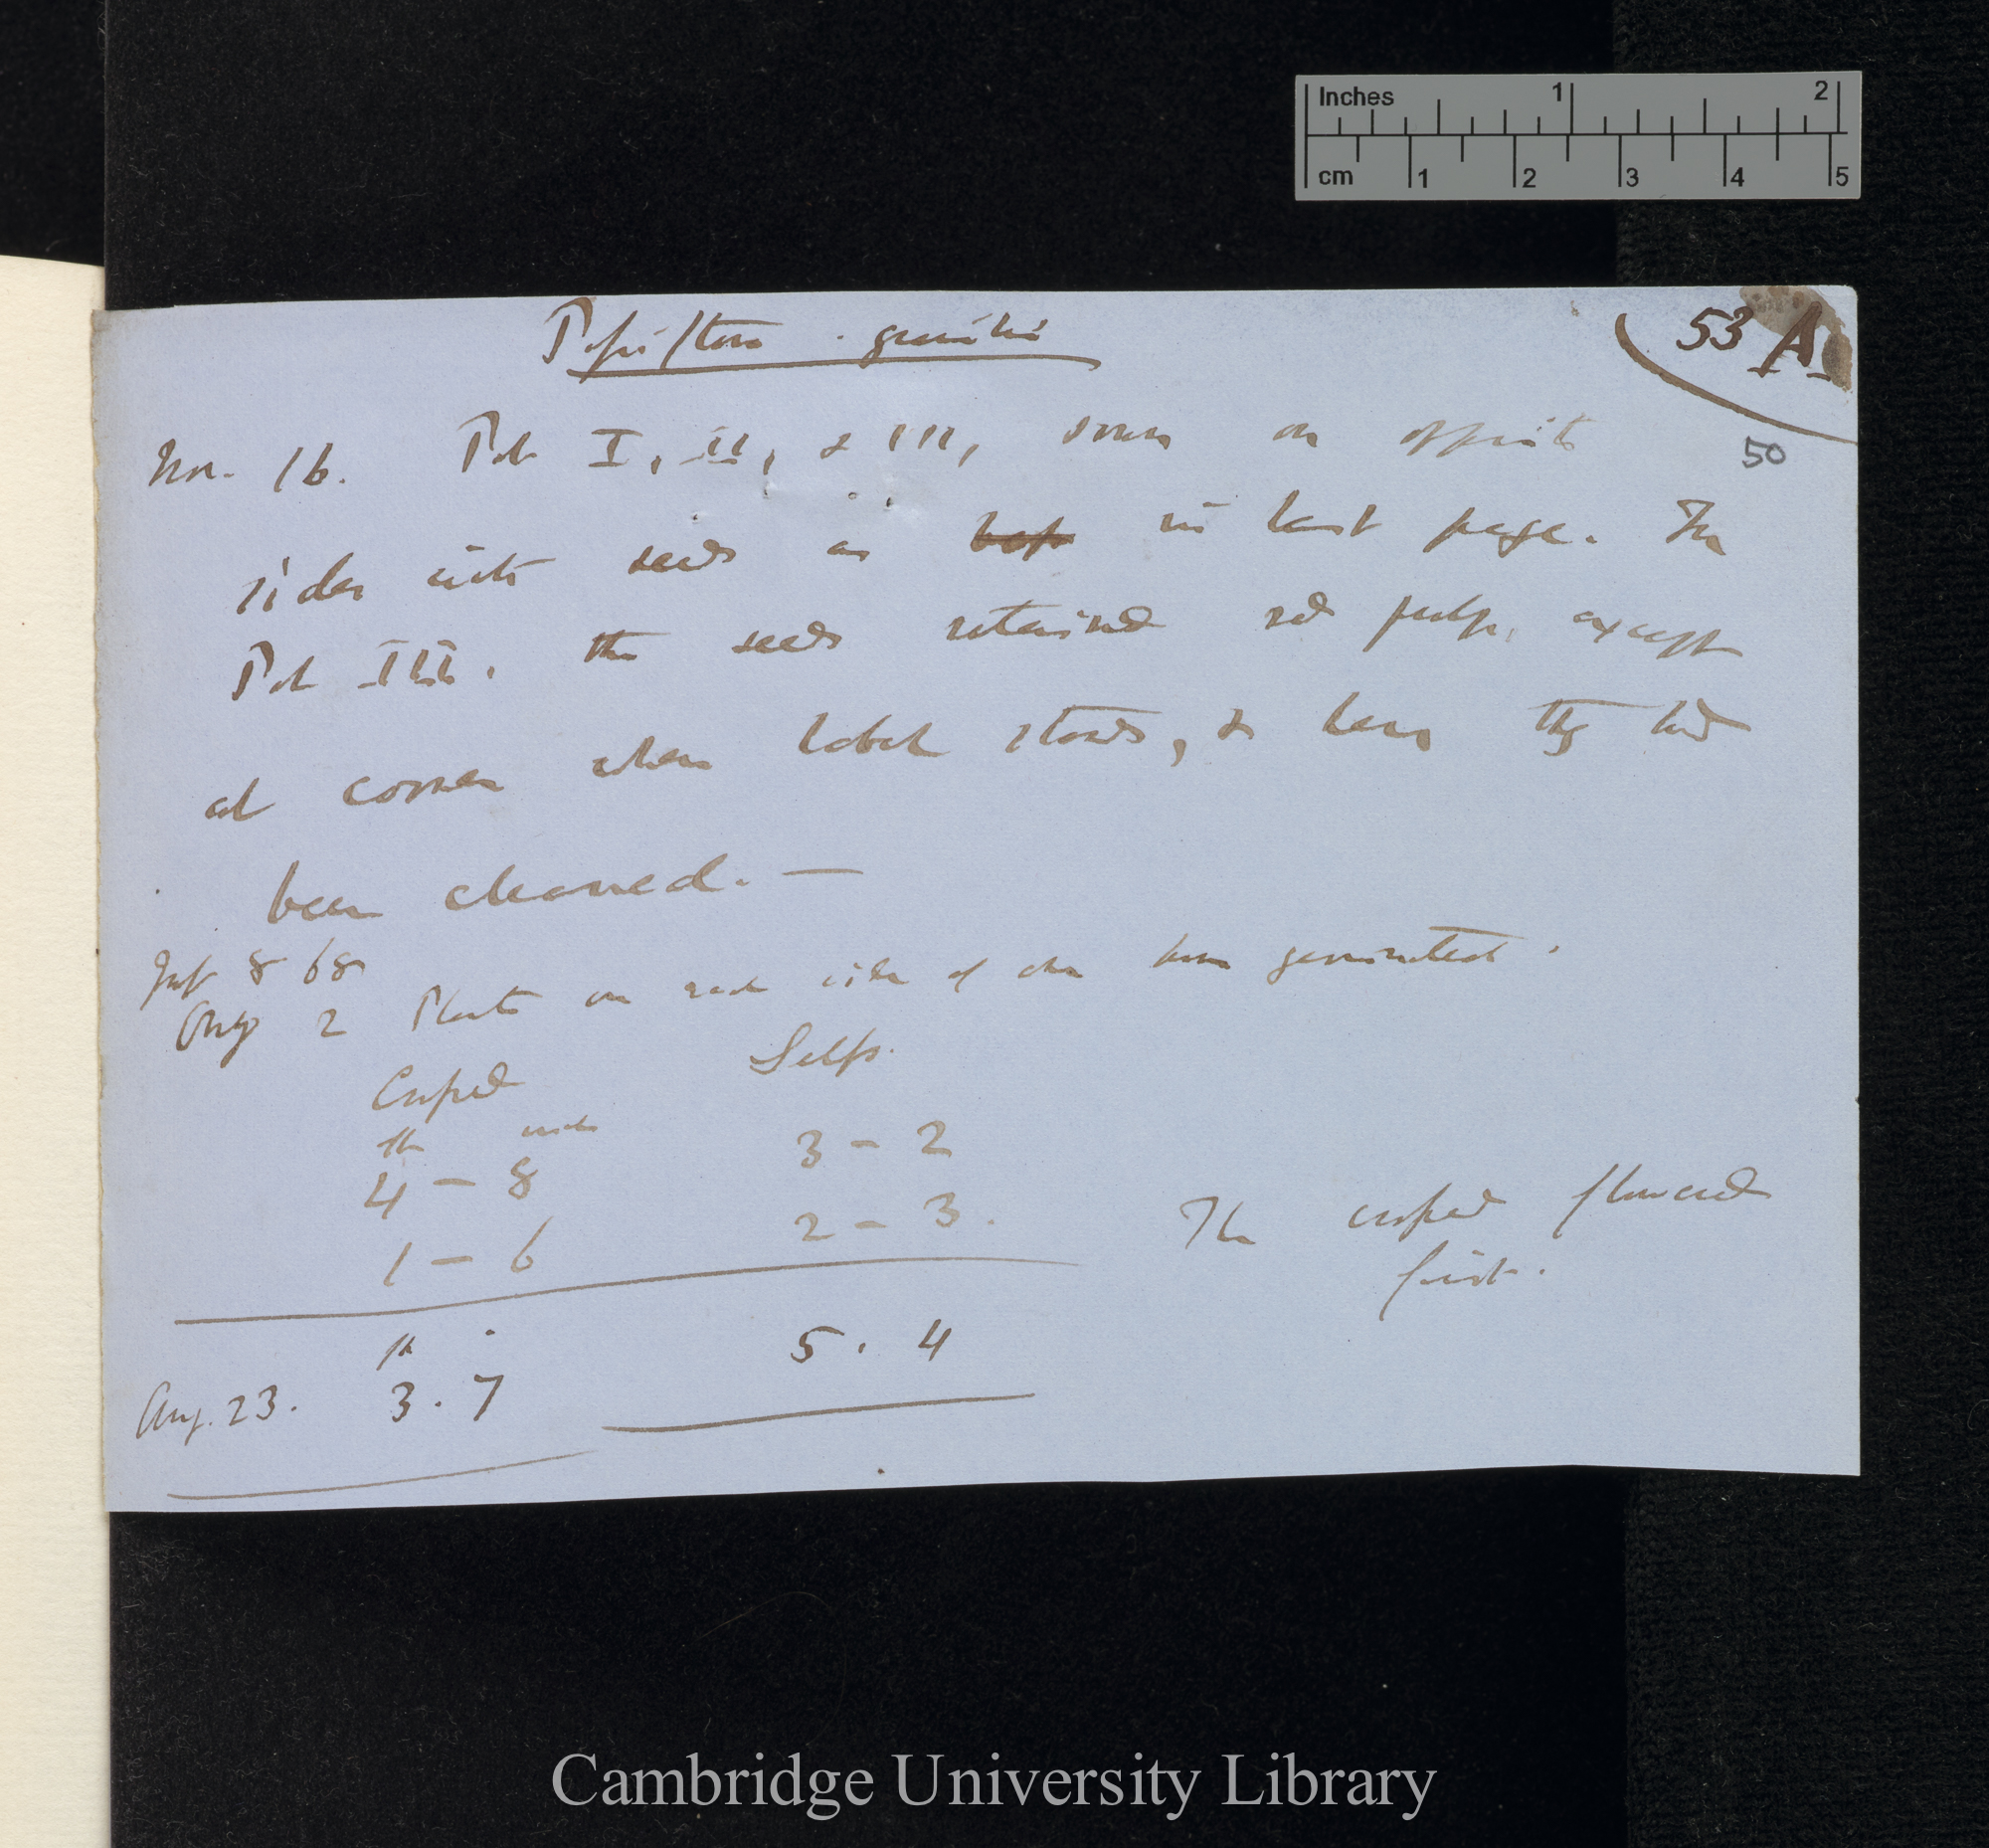 Inches 1 2
cm 1 2 3 4 5
Passiflora gracilis
53 A
50
Nov. 16. Pot I, II, & III, sown on opposite
sides with seeds as in last page. In
Pot III. the seeds retained red pulp, except
at corner where label stands, & here they had
been cleaned. —
68
Aug 2 Plants on each side of have germinated.
Crossed Selfs.
inches
4 — 8 3 — 2
1 — 6 2 — 3.
The crossed flowered
first.
5 . 4
Aug. 23. 3 . 7
Cambridge University Library